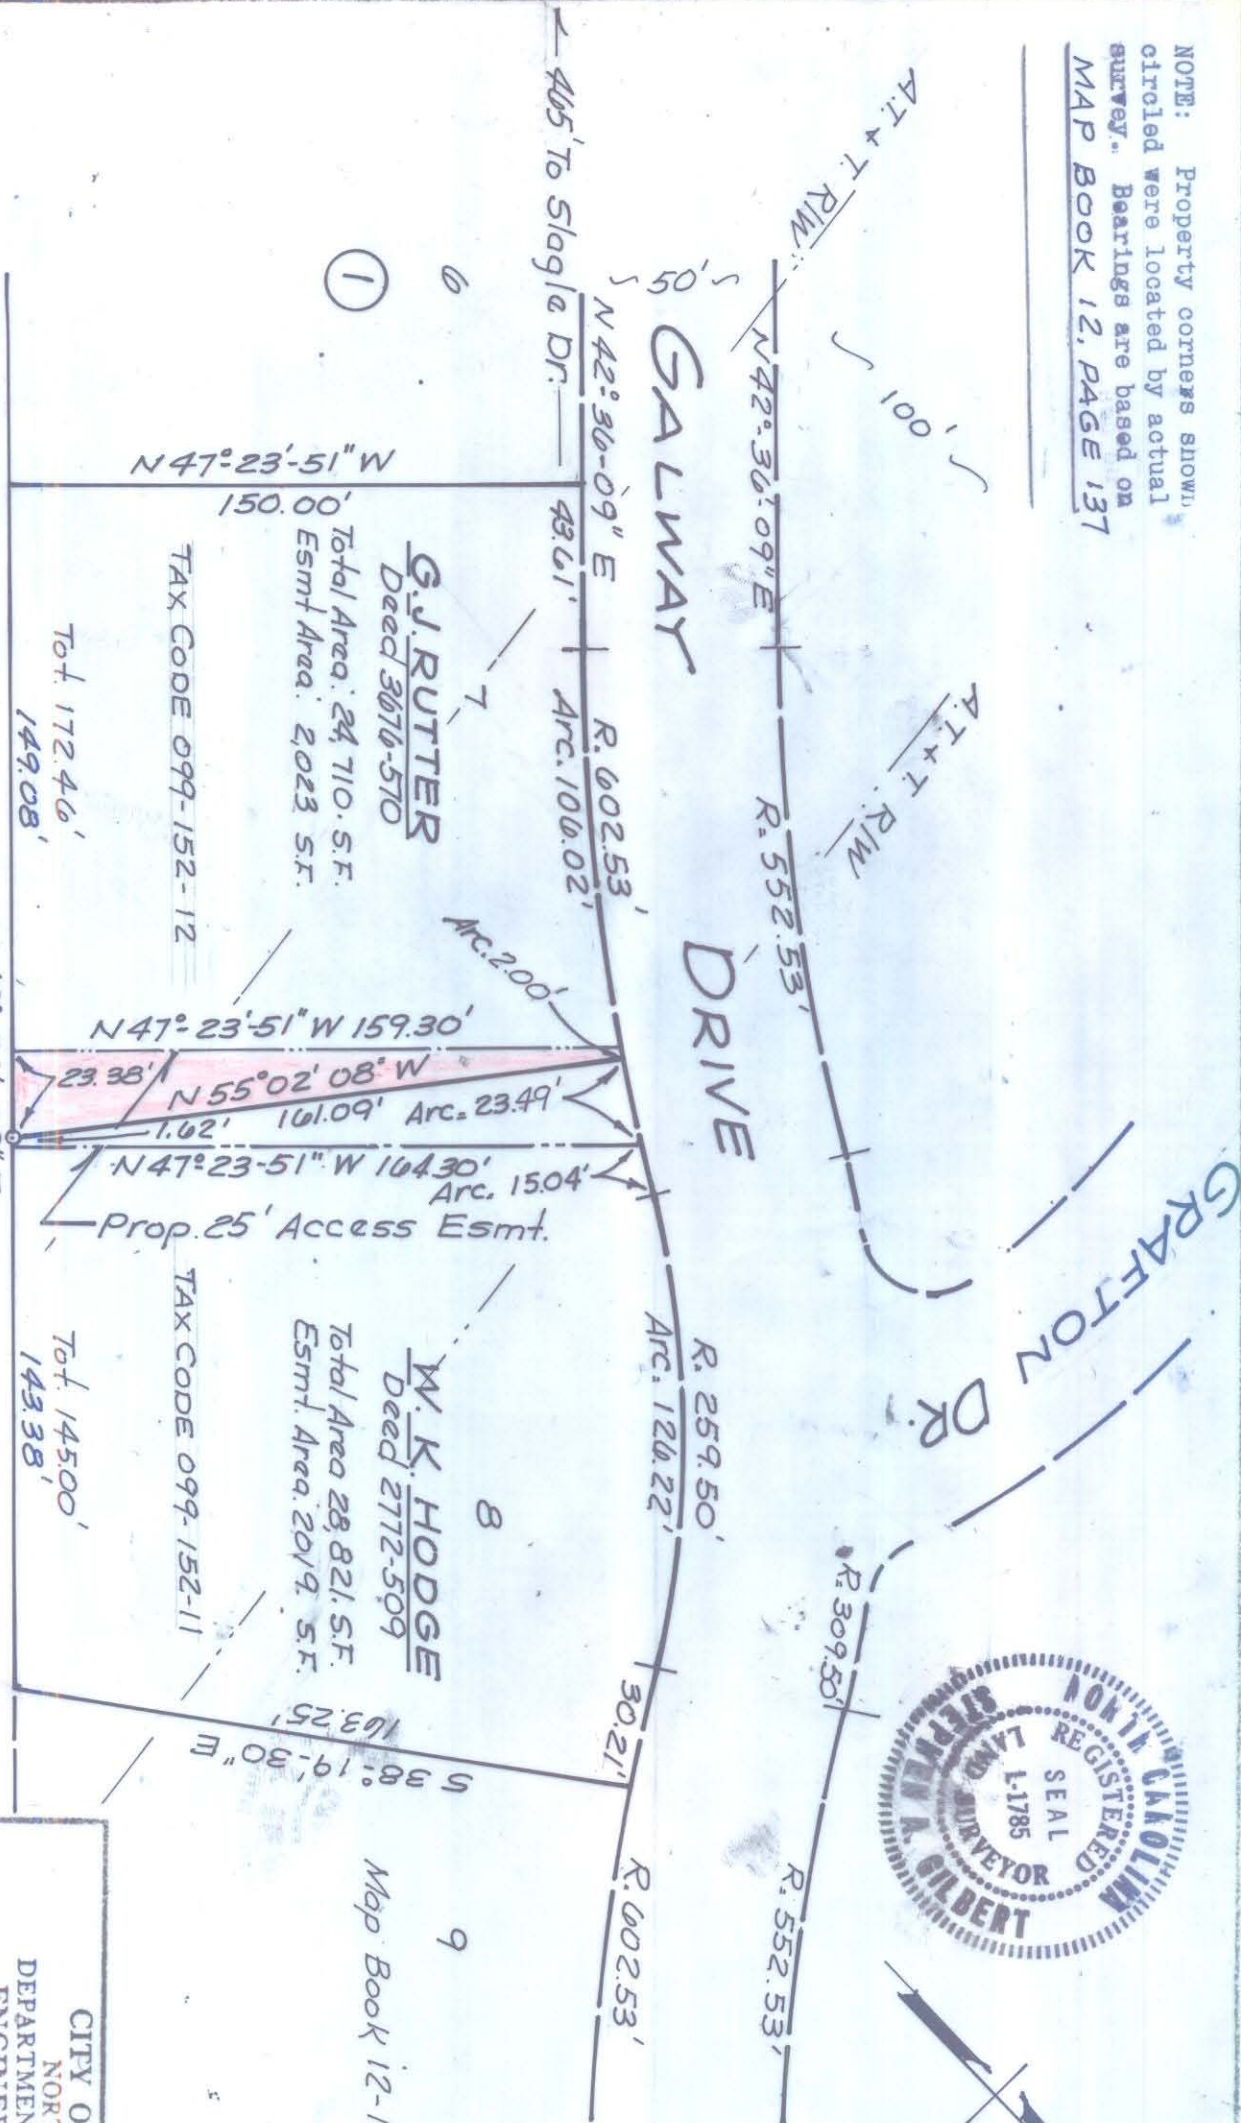 NOTE: Property corners shown
circled were located by actual
survey. Bearings are based on
MAP BOOK 12, PAGE 137
A.T. & T. R/W
100'
A.T. & T. R/W
GRAFTON DR.
NORTH CAROLINA
REGISTERED
SEAL
L-1785
LAND SURVEYOR
STEPHEN A. GILBERT
N 42°-36'-09" E
R. 552.53'
R. 309.50'
R. 552.53'
50'
GALWAY DRIVE
← 465' To Slagle Dr.
N 42°-36-09" E
43.61'
R. 602.53'
Arc. 106.02'
Arc. 2.00'
Arc. 23.49'
Arc. 15.04'
R. 259.50'
Arc. 126.22'
30.21'
R. 602.53'
6
1
N 47°-23'-51" W
150.00'
7
G.J. RUTTER
Deed 3676-570
Total Area: 24,710. S.F.
Esmt Area: 2,023 S.F.
TAX CODE 099-152-12
Tot. 172.46'
149.08'
N 47°-23'-51" W 159.30'
23.38'
N 55°02'08" W
161.09'
1.62'
N 47°-23-51" W 164.30'
Prop. 25' Access Esmt.
8
W. K. HODGE
Deed 2772-509
Total Area 28,821. S.F.
Esmt. Area. 2019. S.F.
TAX CODE 099-152-11
Tot. 145.00'
143.38'
S 38°-19'-30" E
163.25'
9
Map Book 12-1
CITY O
NORT
DEPARTMEN